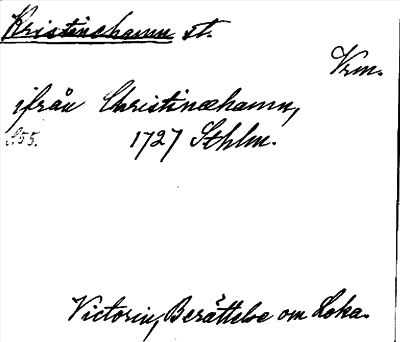 Kristinehamn st.
Vrm.
ifrån Christinæhamn,
S. 55. 1727 Sthlm.
Victorin, Berättelse om Loka.